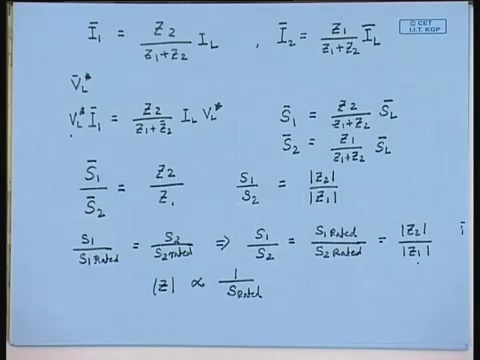 © CET
I.I.T. KGP
Ī₁ = Z₂ / (Z₁+Z₂) I_L , Ī₂ = Z₁ / (Z₁+Z₂) Ī_L
V̄_L*
V_L* Ī₁ = Z₂ / (Z₁+Z₂) I_L V_L*
S̄₁ = Z₂ / (Z₁+Z₂) S̄_L
S̄₂ = Z₁ / (Z₁+Z₂) S̄_L
S̄₁ / S̄₂ = Z₂ / Z₁
S₁ / S₂ = |Z₂| / |Z₁|
S₁ / S₁ Rated = S₂ / S₂ rated ⇒ S₁ / S₂ = S₁ Rated / S₂ Rated = |Z₂| / |Z₁|
|Z| ∝ 1 / S Rated